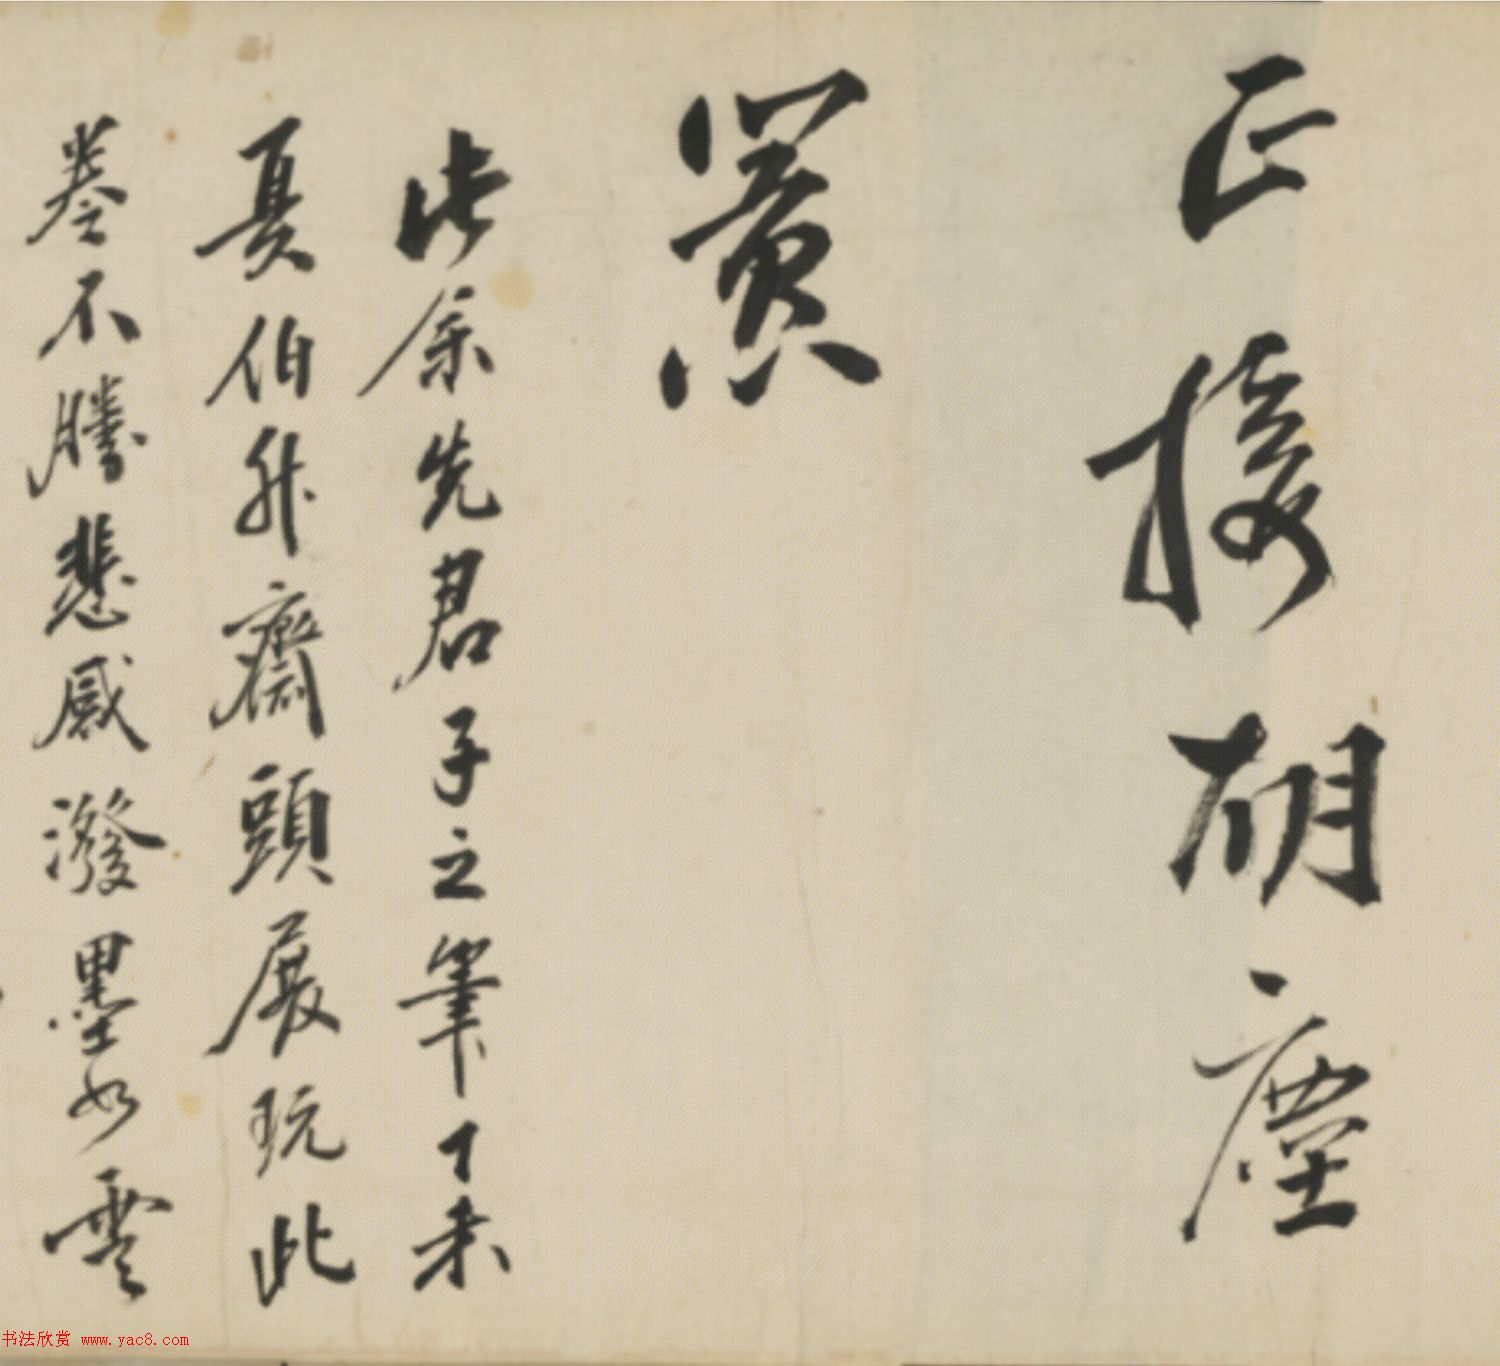 正接胡塵
此余先君子之筆丁未
夏伯升齋頭展玩此
卷不勝悲感潑墨如雲
书法欣赏 www.yac8.com